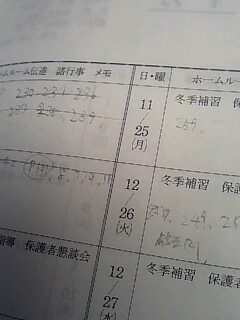 ームルーム伝達 諸行事 メモ
日・曜
ホームルー
230 231 236
237 238, 239
11
/
25
(月)
冬季補習 保
259,
12
/
26
(火)
冬季補習 保護
249, 25
指導 保護者懇談会
12
/
27
(水)
冬季補習 保護者